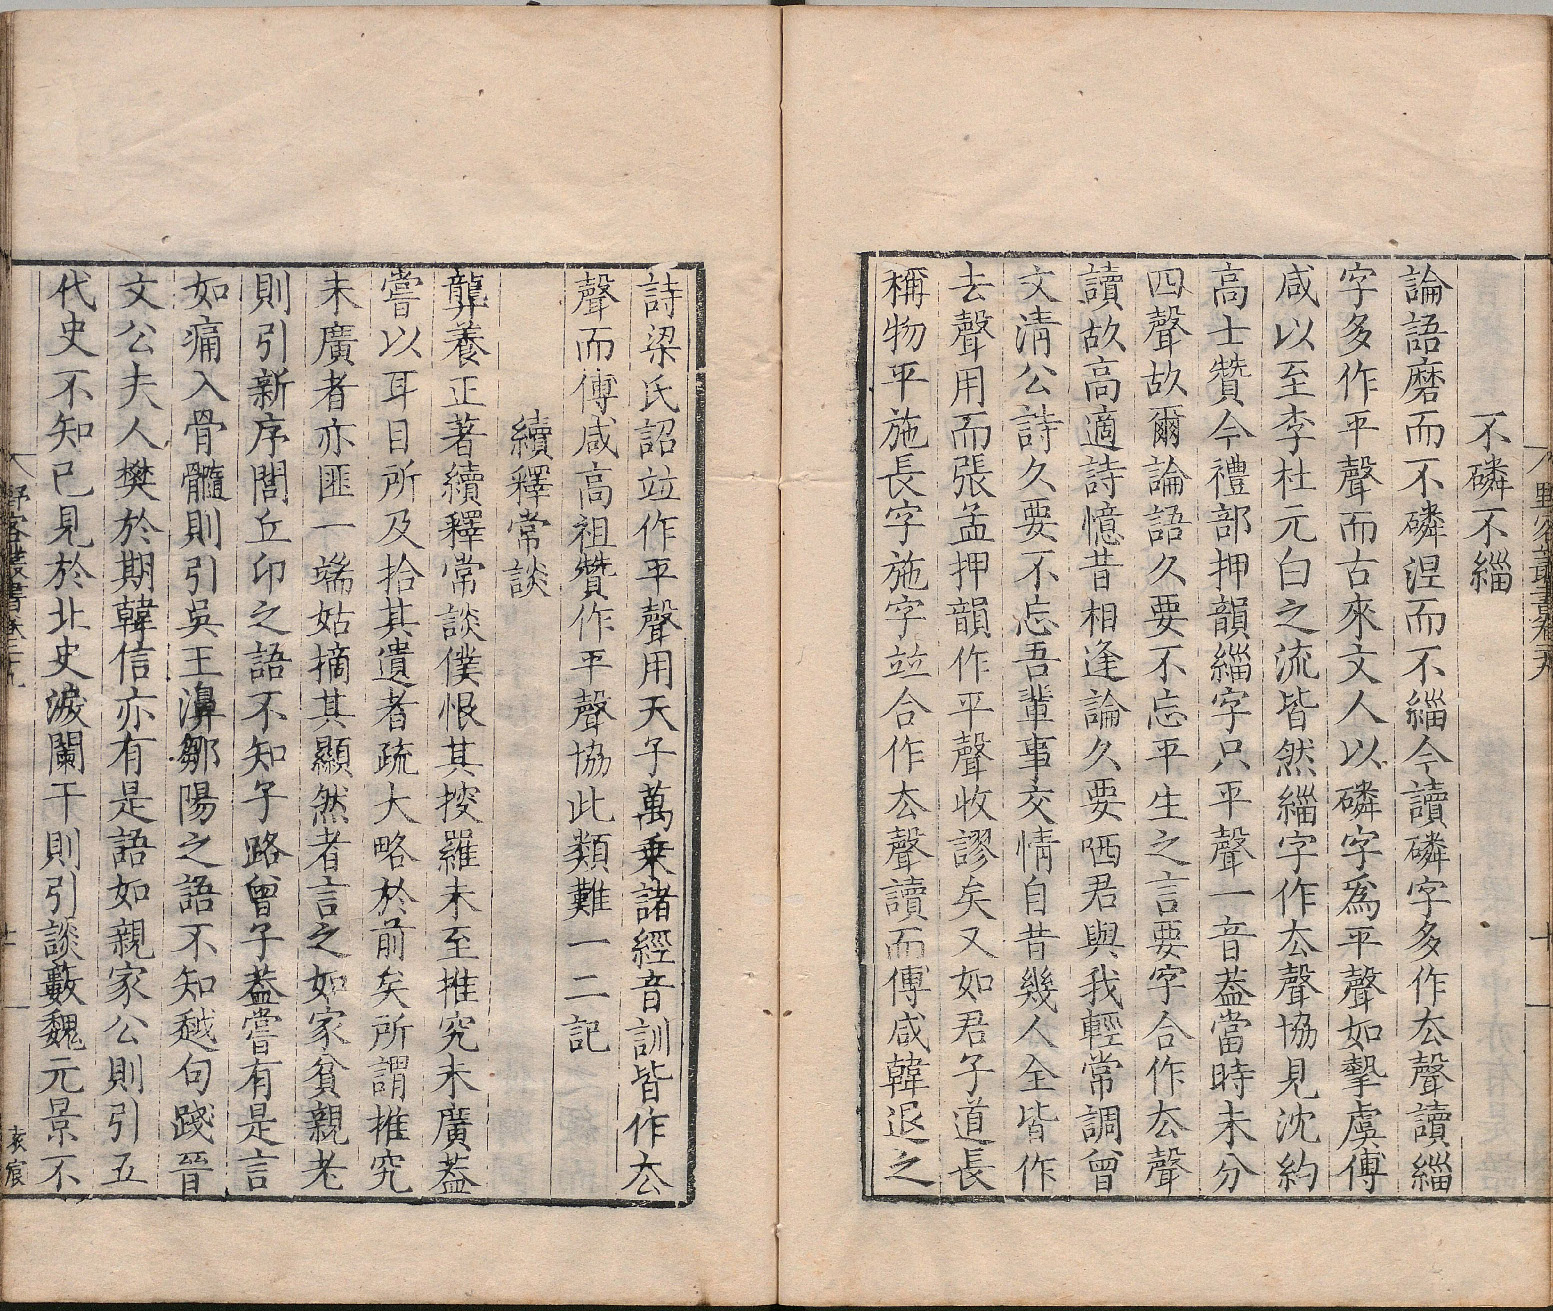 不磷不緇
論語磨而不磷涅而不緇今讀磷字多作厺聲讀緇
字多作平聲而古來文人以磷字爲平聲如摯虞傅
咸以至李杜元白之流皆然緇字作厺聲協見沈約
高士贊今禮部押韻緇字只平聲一音葢當時未分
四聲故爾論語久要不忘平生之言要字合作厺聲
讀故高適詩憶昔相逢論久要陋君與我輕常調曾
文清公詩久要不忘吾輩事交情自昔幾人全皆作
去聲用而張孟押韻作平聲收謬矣又如君子道長
稱物平施長字施字竝合作厺聲讀而傅咸韓退之
詩梁氏詔竝作平聲用天子萬乗諸經音訓皆作厺
聲而傅咸高祖贊作平聲協此類難一二記
續釋常談
龔養正著續釋常談僕恨其搜羅未至推究未廣葢
嘗以耳目所及拾其遺者疏大略於前矣所謂推究
未廣者亦匪一端姑摘其顯然者言之如家貧親老
則引新序閭丘卬之語不知子路曾子葢嘗有是言
如痛入骨髓則引吳王濞鄒陽之語不知越句踐晉
文公夫人樊於期韓信亦有是語如親家公則引五
代史不知已見於北史淚闌干則引談藪魏元景不